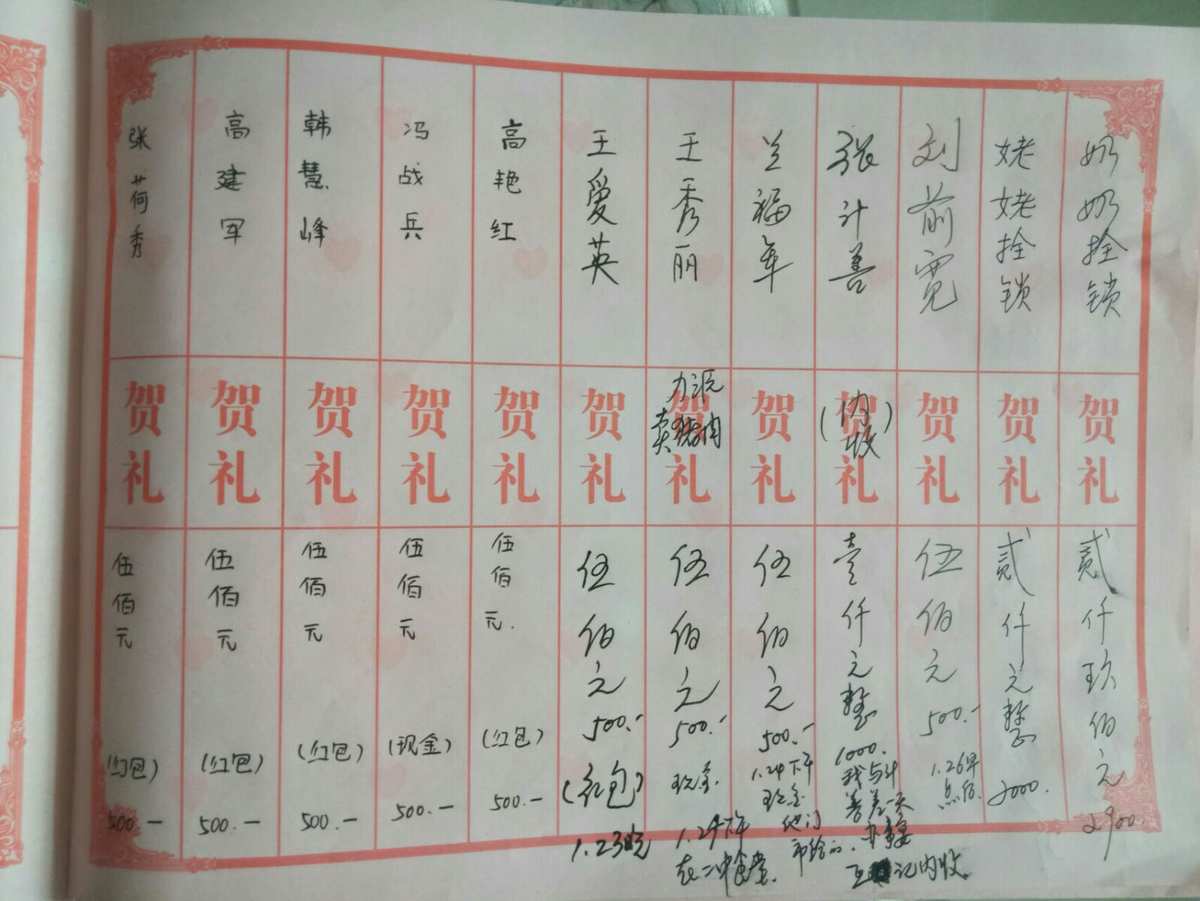 奶奶拴锁
贺礼
贰仟玖佰元
2900
姥姥拴锁
贺礼
贰仟元整
2000.
刘前宽
贺礼
伍佰元
500.-
1.26早
点后
张计善
贺礼
(内收)
壹仟元整
1000.
我与计
善差一天
办事
互记内收
兰福年
贺礼
伍佰元
500.-
1.24下午
现金
他们
王秀丽
贺礼
力派
卖猪肉
伍佰元
500.-
现金
1.24下午
在二中食堂
王爱英
贺礼
伍佰元
500.-
(红包)
1.23晚
高艳红
贺礼
伍佰元.
(红包)
500.-
冯战兵
贺礼
伍佰元
(现金)
500.-
韩慧峰
贺礼
伍佰元
(红包)
500.-
高建军
贺礼
伍佰元
(红包)
500.-
张荷秀
贺礼
伍佰元
(红包)
500.-